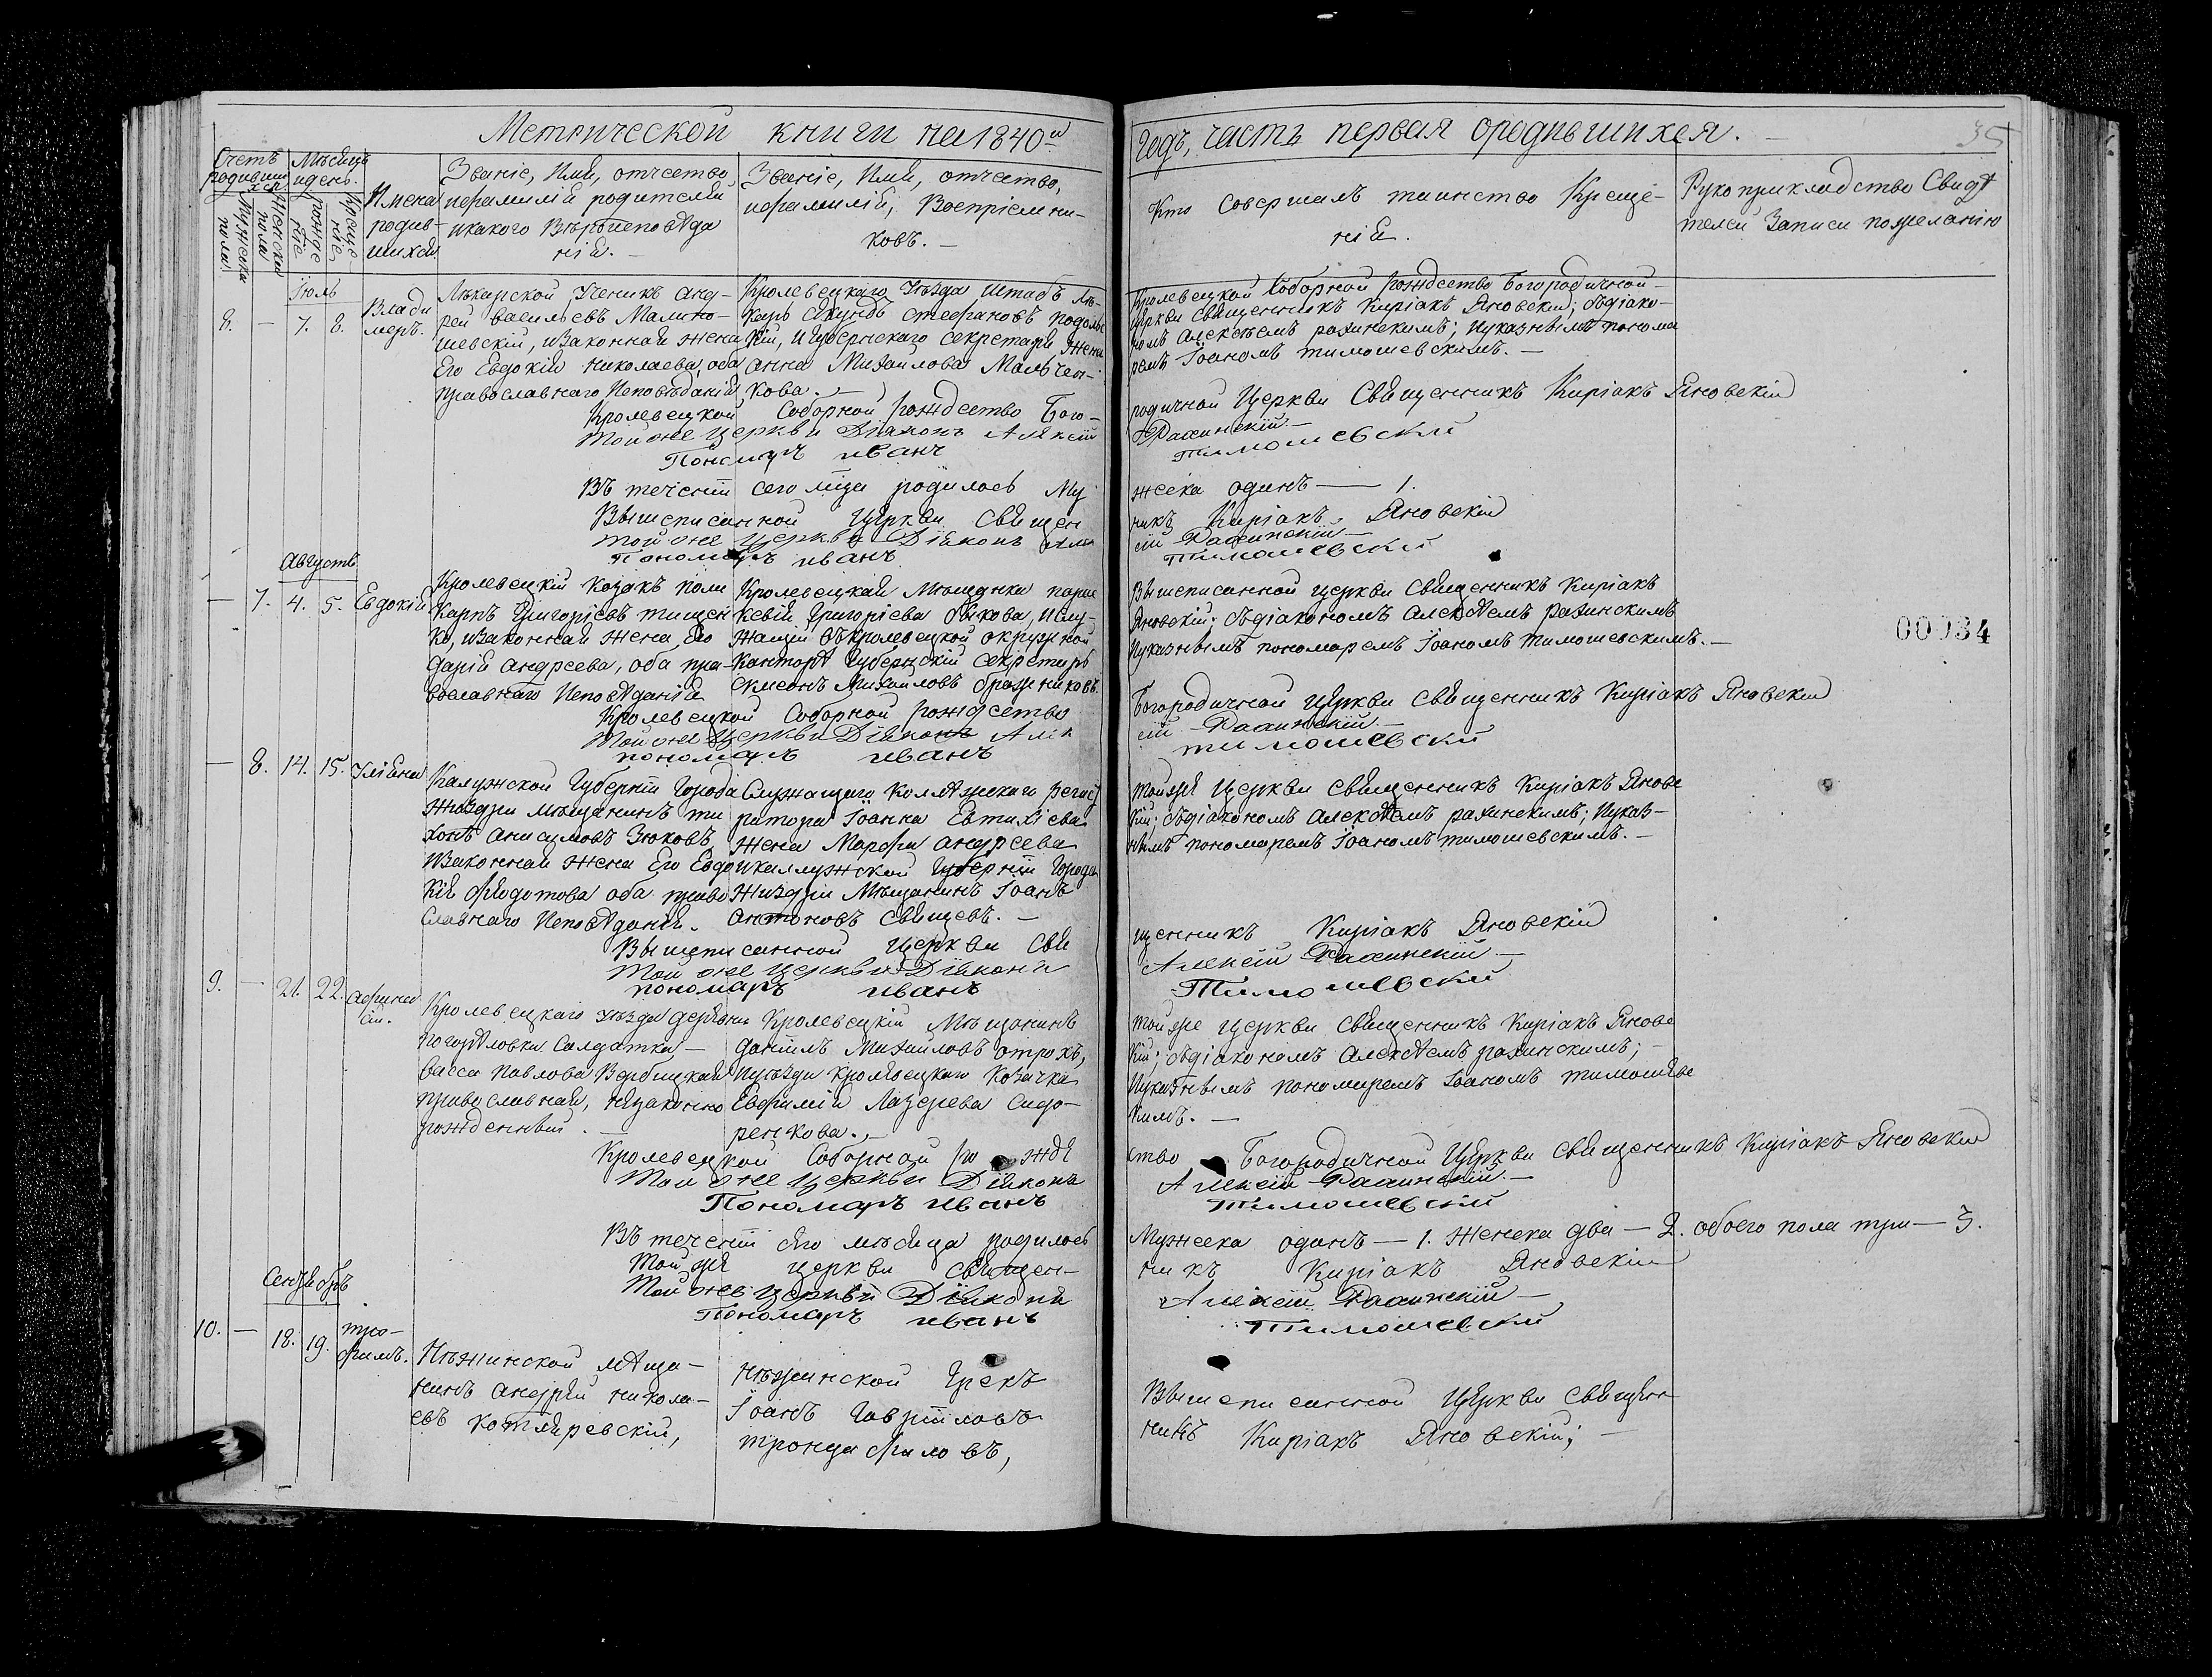 Метрической книги на 1840й
Годъ, часть первая ородившихся.
35
Счетъ родивших ся
Мѣсяцъ идень.
Мужеска пола
Женска пола
рожде ніе
Креще ніе
Имена родив- шихся
Званіе, Имя, отчество
ифамилія родителей
икакого Вѣроисповѣда
нія.
Званіе, Имя, отчество,
ифамилія, Воспріемни-
ковъ.
Кто совершалъ таинство Креще-
нія.
Рукоприкладство Свидѣ
телей Записи пожеланію
Іюль
8. — 7. 8. Влади
меръ.
Лѣкарской Ученикъ Анд-
рей васильевъ Малино-
шевскій, изаконная жена
Его Евдокія Николаева, оба
православнаго Исповѣданія
Кролевецкаго Уѣзда Штабъ Лѣ-
карь стефановъ подоль
кій, иГубернскаго секретаря жена
анна Михайлова Мальчен-
кова.
Кролевецкой Соборной рождество Богородичной
церкви священникъ Киріакъ Яновскій; съдіако-
номъ Алексѣемъ рахинскимъ; Иуказнымъ понома
ремъ Іоаномъ тимошевскимъ.
Кролевецкой Соборной рождество Бого-
родичной Церкви Священникъ Киріакъ Яновскій
Той же церкви Діяконъ Алексій
Рахинскій
Пономарь иванъ
Тимошевский
Въ теченіи сего мца родилось Му
жеска одинъ — 1.
Вышеписанной Церкви Священ
никъ Киріакъ Яновскій
Той же церкви Діяконъ Але
ій Рахинскій
Пономарь иванъ
Тимошевский
Августъ
— 7. 4. 5. Евдокія
Кролевецкій козакъ поли
Карпъ Григоріевъ тищен
ко, изаконная жена Его
Дарія андреева, оба пра-
вославнаго Исповѣданія
Кролевецкая Мѣщанка пара
кевія Григоріева быкова, иСлу-
жащій въкролевецкой окружной
Канторѣ Губернскій Секретарь
Симеонъ Михайловъ бражниковъ.
Вышеписанной церкви Священникъ Киріакъ
Яновскій; съдіакономъ алексѣемъ рахинскимъ
Иуказнымъ пономаремъ Іоаномъ Тимошевскимъ.
00034
Кролевецкой Соборной рождество
Богородичной Церкви Священникъ Киріакъ Яновскій
Той же Церкви Діяконъ Алек
ій Рахинскій
пономарь иванъ
тимошевский
— 8. 14. 15. Уліяна
Калужской Губерніи Города
Жиздри мѣщанинъ ти
хонъ анисимовъ Зюковъ,
изаконная жена Его Евдо
кія Федотова оба право
славнаго Исповѣданія.
Служащаго Коллежскаго регист
ратора Іоанна Евтихіева
жена Марфа андреева
икаллужской Губерніи Города
Жиздри Мѣщанинъ Іоанъ
антоновъ Свищевъ.
тойже Церкви священникъ Киріакъ Яновс
кій; съдіакономъ алексѣемъ рахинскимъ; Иуказ-
нымъ пономаремъ Іоаномъ тимошевскимъ.
Вышеписанной церкви Свя
щенникъ Киріакъ Яновскій
Той же церкви Діяконъ
Алексій Рахинскій
пономарь иванъ
Тимошевский
9. — 21. 22. афанас
ій.
Кролевецкаго уѣзда деревни
погорѣловки Салдатка
Васса Павлова Вербицкая
православная, незаконно
рожденный.
Кролевецкій Мѣщанинъ
даніилъ Михайловъ отрохъ,
Иуѣзда кролевецкаго Козачка
Евфимія Лазерева Сидо-
ренкова.
Той же церкви Священникъ Киріакъ Яновс
кій; съдіакономъ алексѣемъ рахинскимъ;
Иуказнымъ пономаремъ Іоаномъ тимошевс
кимъ.
Кролевецкой Соборной рожде
ство Богородичной Церкви Священникъ Киріакъ Яновскій
Той же церкви Діяконъ
Алексій Рахинскій
Пономарь иванъ
Тимошевский
Въ теченіи сего мѣсяца родилось
Мужеска одинъ — 1. Женска два — 2. обоего пола три — 3.
Той же церкви священ-
никъ Киріакъ Яновскій
Той же церкви Діяконъ
Алексій Рахинскій
Пономарь иванъ
Тимошевский
Сентябрь
10. — 18. 19. тро-
фимъ.
Нѣжинской мѣща-
нинъ андрей никола-
евъ котляревскій,
нѣжинской Грекъ
Іоанъ Гавріиловъ
тронцафиловъ,
Вышеписанной Церкви священ
никъ Киріакъ Яновскій;